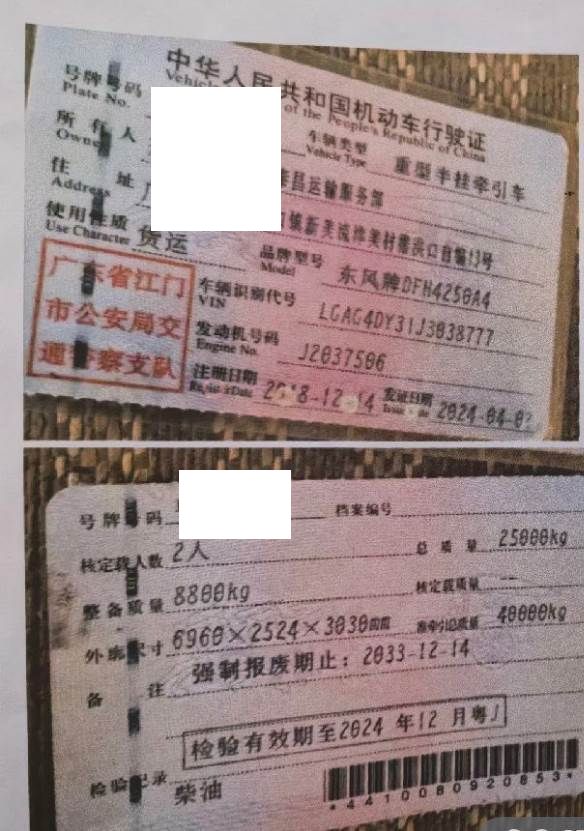 中华人民共和国机动车行驶证
Vehicle of the People's Republic of China
号牌号码
Plate No.
车辆类型 重型半挂牵引车
Vehicle Type
所有人 泰昌运输服务部
Owner
住址 镇新美成炸美村 洪口自编13号
Address
使用性质 货运
Use Character
品牌型号 东风牌DFH4250A4
Model
广东省江门
市公安局交
通警察支队
车辆识别代号 LGAG4DY31J3038777
VIN
发动机号码 J2037506
Engine No.
注册日期 2018-12-14 发证日期 2024-04-0
Register Date Issue Date
号牌号码 档案编号
核定载人数 2人 总质量 25000kg
整备质量 8800kg 核定载质量 --
外廓尺寸 6960×2524×3030mm 准牵引总质量 40000kg
备注 强制报废期止：2033-12-14
检验有效期至2024 年12 月粤J
检验记录 柴油
*4410080920853*